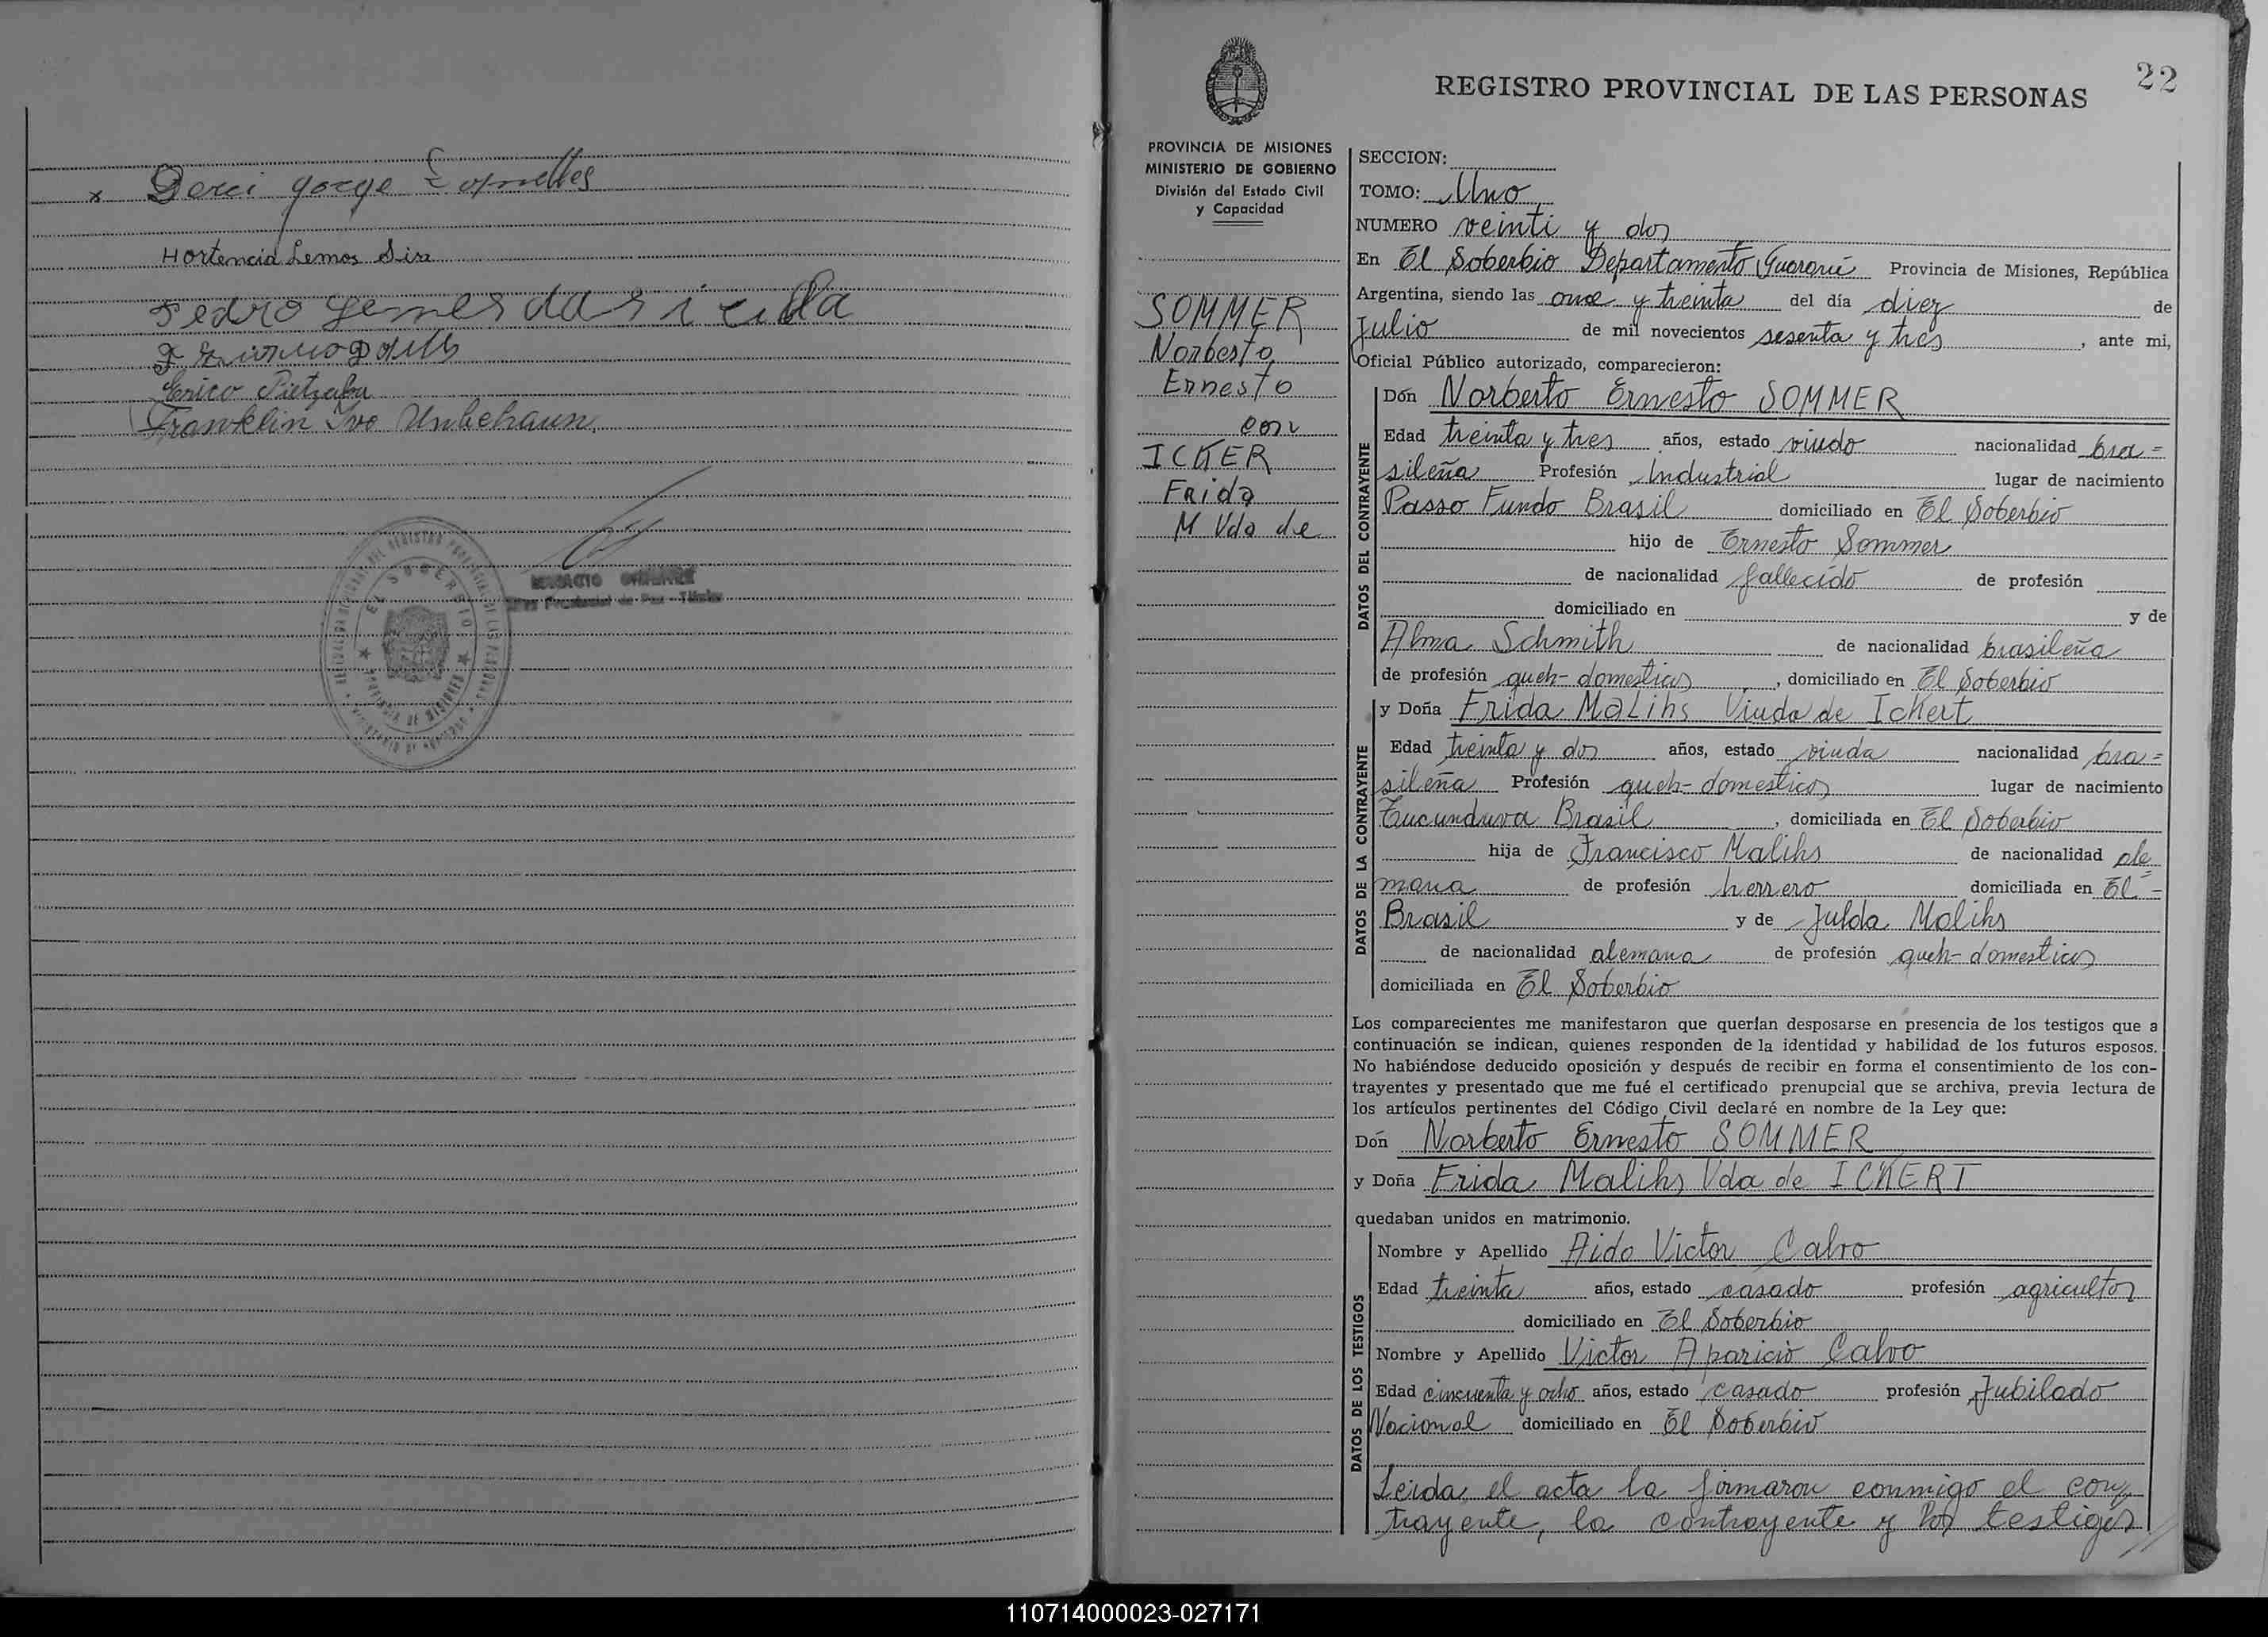 x Derci Jorge Dornelles
Hortencia Lemos Sira
Pedro gemes da
Erico
Franklin Ivo Unbehaun
EL SOBERBIO
PROVINCIA DE MISIONES
22
REGISTRO PROVINCIAL DE LAS PERSONAS
PROVINCIA DE MISIONES
MINISTERIO DE GOBIERNO
División del Estado Civil
y Capacidad
SOMMER
Norberto
Ernesto
con
ICKER
Frida
M Vda de
SECCION:
TOMO: Uno
NUMERO veinti y dos
En El Soberbio Departamento Guaraní Provincia de Misiones, República
Argentina, siendo las once y treinta del día diez de
Julio de mil novecientos sesenta y tres, ante mi,
Oficial Público autorizado, comparecieron:
DATOS DEL CONTRAYENTE
Don Norberto Ernesto SOMMER
Edad treinta y tres años, estado viudo nacionalidad bra=
sileña Profesión Industrial lugar de nacimiento
Passo Fundo Brasil domiciliado en El Soberbio
hijo de Ernesto Sommer
de nacionalidad fallecido de profesión
domiciliado en y de
Alma Schmith de nacionalidad brasileña
de profesión queh-domesticos, domiciliado en El Soberbio
DATOS DE LA CONTRAYENTE
y Doña Frida Malihs Viuda de Ickert
Edad treinta y dos años, estado viuda nacionalidad bra=
sileña Profesión queh-domesticos lugar de nacimiento
Tucunduva Brasil, domiciliada en El Soberbio
hija de Francisco Malihs de nacionalidad ale=
mana de profesión herrero domiciliada en El -
Brasil y de Julda Malihs
de nacionalidad alemana de profesión queh-domesticos
domiciliada en El Soberbio
Los comparecientes me manifestaron que querían desposarse en presencia de los testigos que a
continuación se indican, quienes responden de la identidad y habilidad de los futuros esposos.
No habiéndose deducido oposición y después de recibir en forma el consentimiento de los con-
trayentes y presentado que me fué el certificado prenupcial que se archiva, previa lectura de
los artículos pertinentes del Código Civil declaré en nombre de la Ley que:
Don Norberto Ernesto SOMMER
y Doña Frida Malihs Vda de ICKERT
quedaban unidos en matrimonio.
DATOS DE LOS TESTIGOS
Nombre y Apellido Aido Victor Calvo
Edad treinta años, estado casado profesión agricultor
domiciliado en El Soberbio
Nombre y Apellido Victor Aparicio Calvo
Edad cincuenta y ocho años, estado casado profesión Jubilado
Nacional domiciliado en El Soberbio
Leida el acta la firmaron conmigo el con=
trayente, la contrayente y los testigos
110714000023-027171